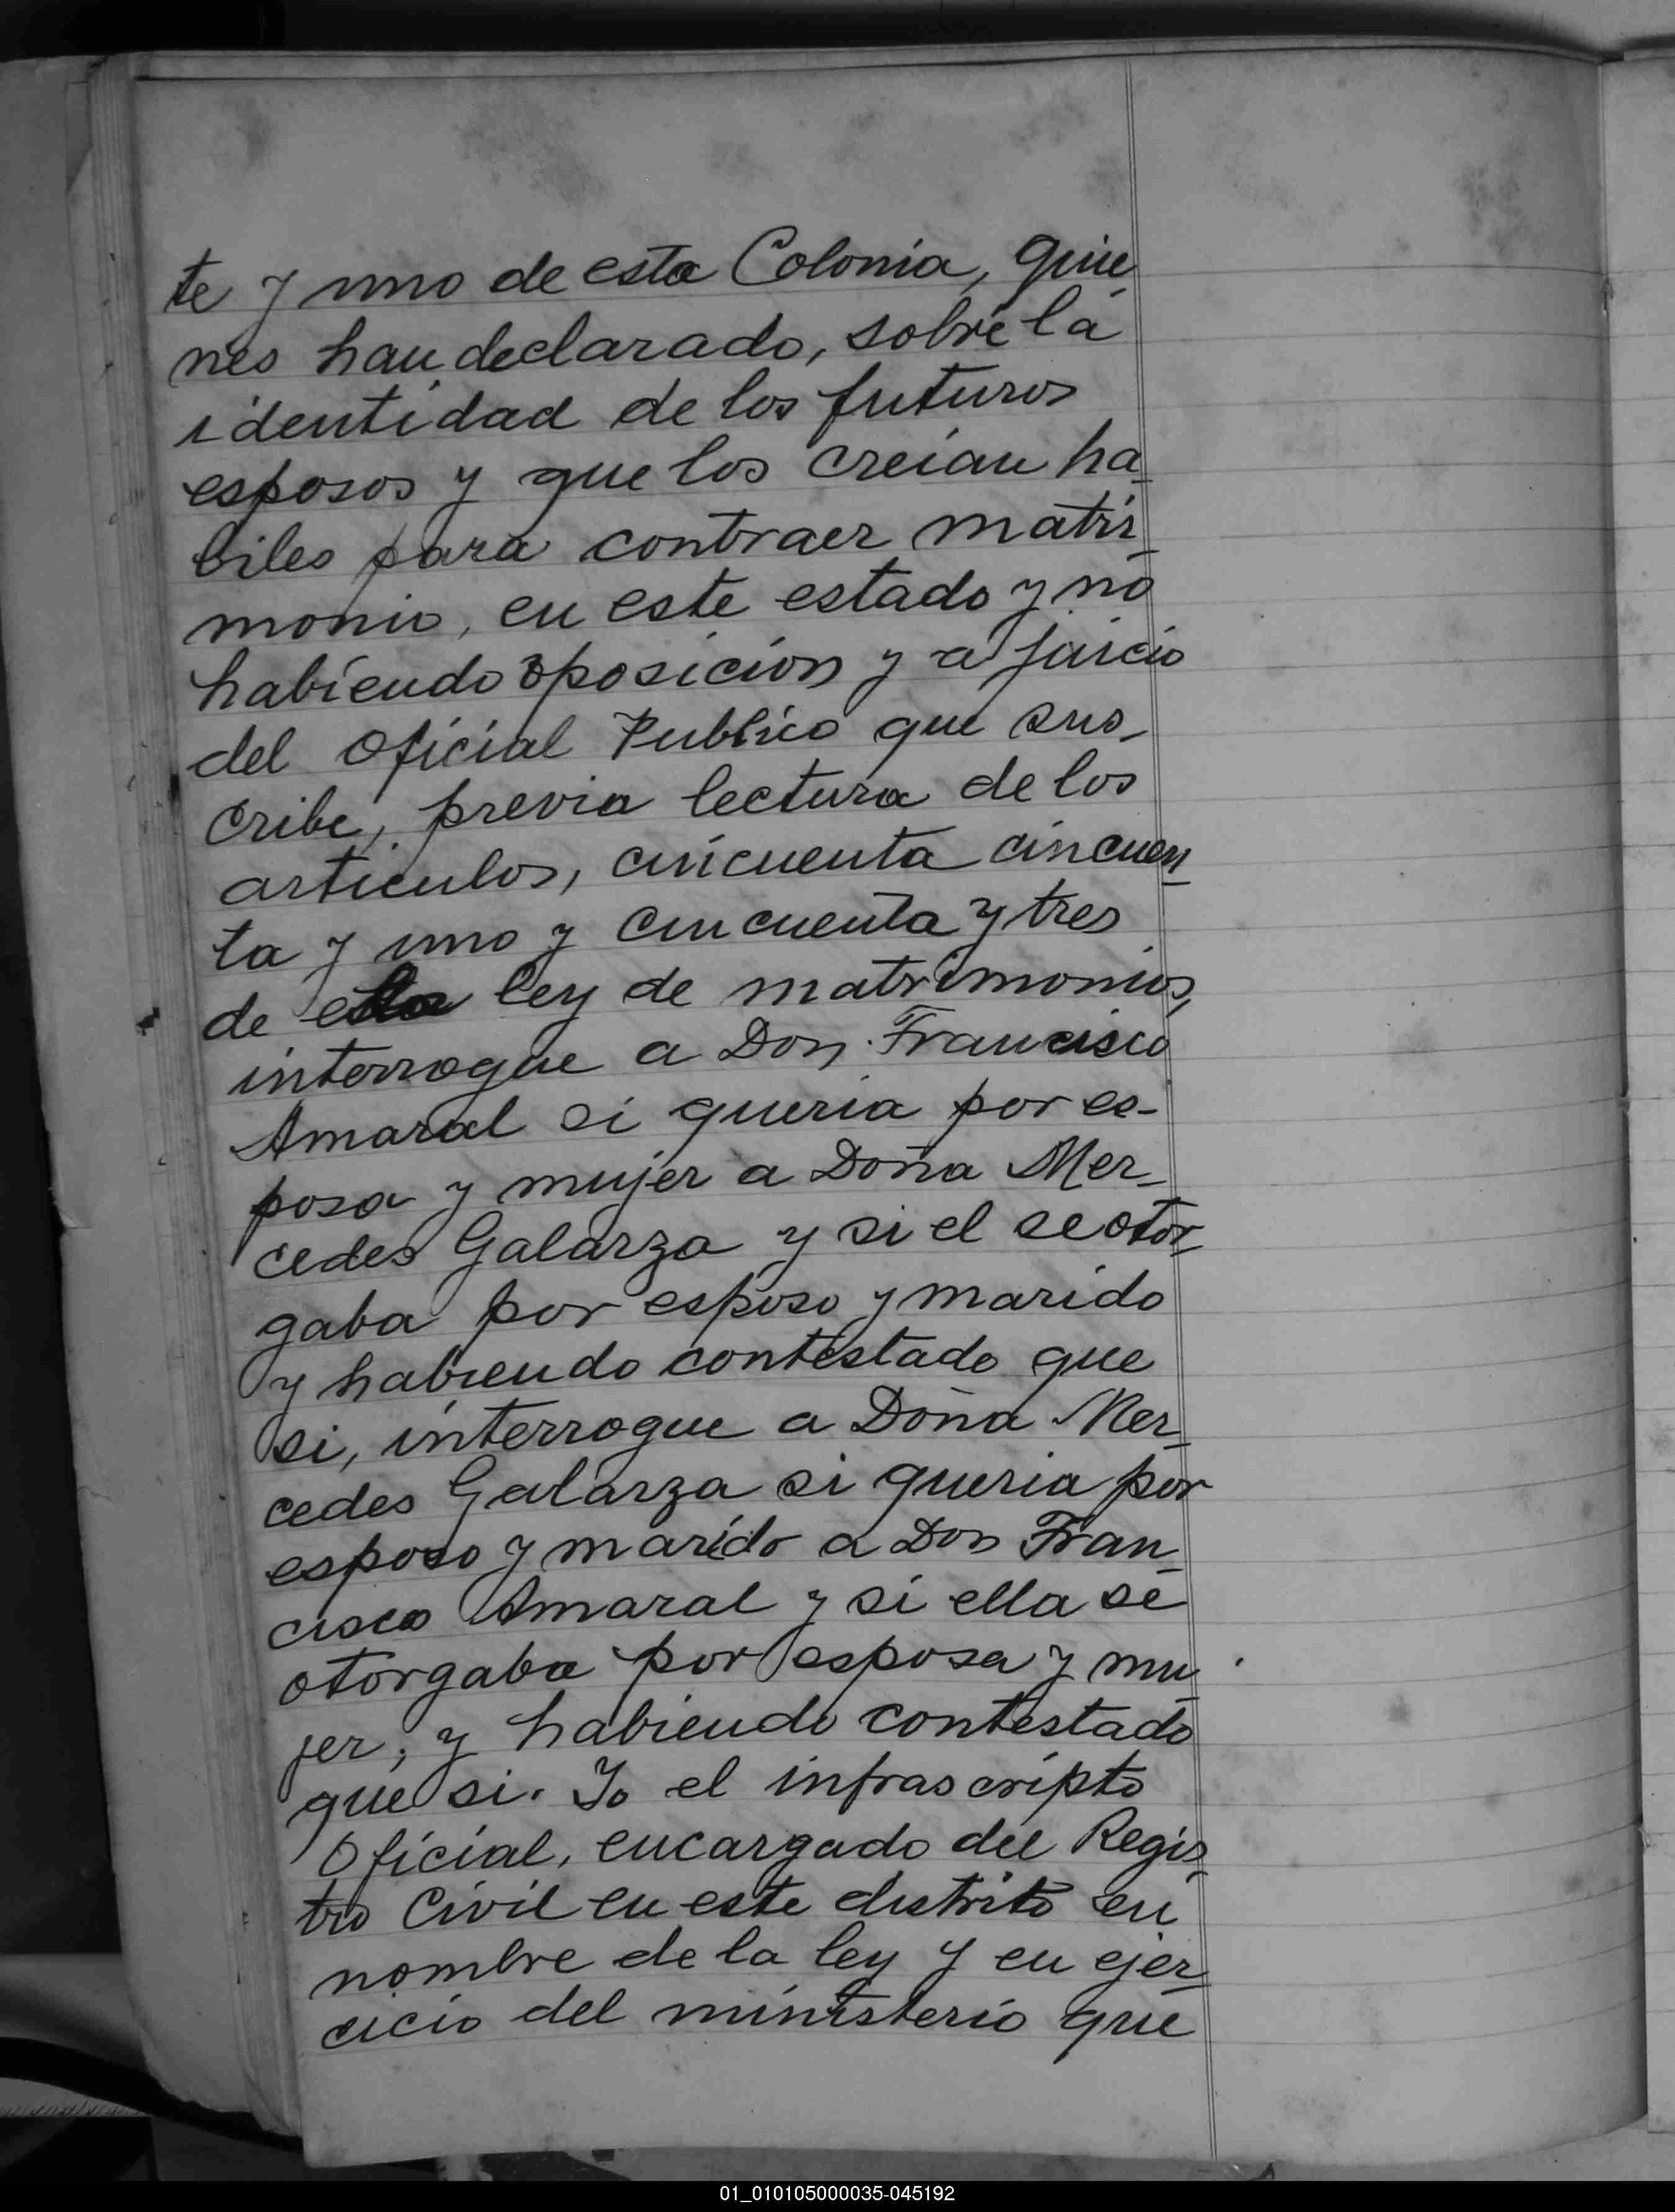 te y uno de esta Colonia, quie_
nes han declarado, sobre la
identidad de los futuros
esposos y que los creian ha_
biles para contraer matri_
monio, en este estado y no
habiendo oposicion y a juicio
del Oficial Publico que sus_
cribe, previa lectura de los
articulos, cincuenta cincuen_
ta y uno y cincuenta y tres
de la ley de matrimonios,
interrogue a Don Francisco
Amaral si queria por es-
posa y mujer a Doña Mer_
cedes Galarza y si el se otor_
gaba por esposo y marido
y habiendo contestado que
si, interrogue a Doña Mer_
cedes Galarza si queria por
esposo y marido a Don Fran_
cisco Amaral y si ella se
otorgaba por esposa y mu_
jer; y habiendo contestado
que si. Yo el infrascripto
Oficial, encargado del Regis_
tro Civil en este distrito en
nombre de la ley y en ejer_
cicio del ministerio que
01_010105000035-045192